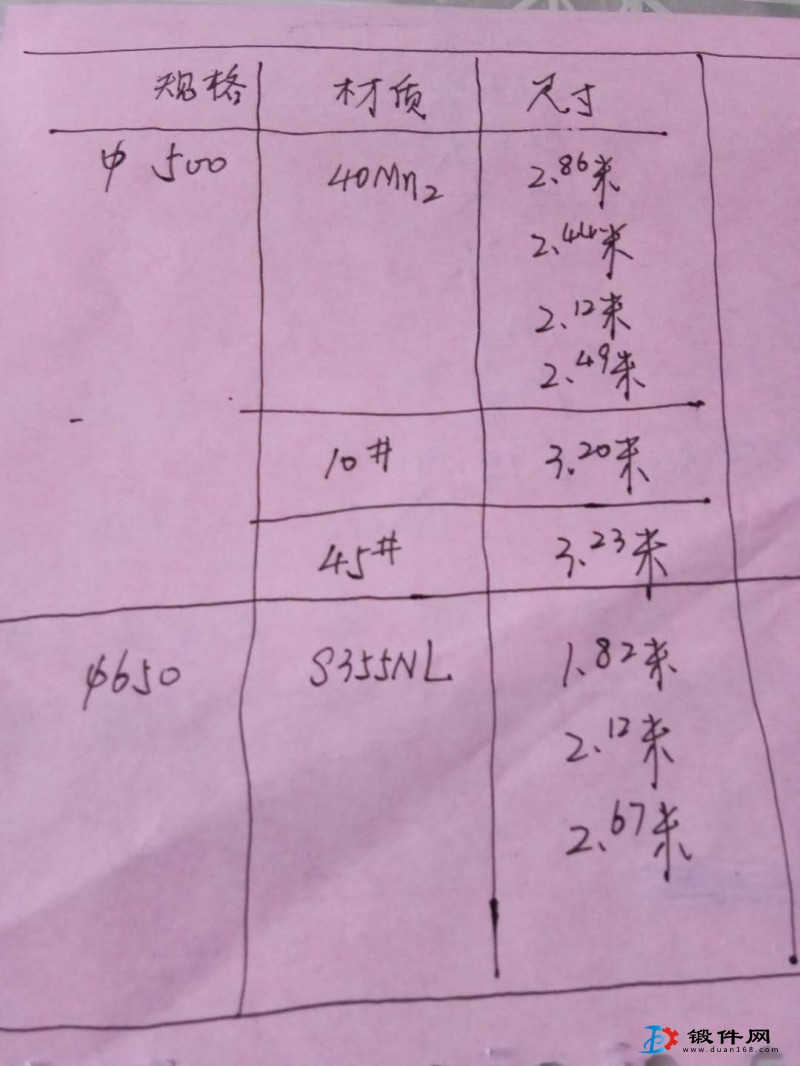 规格 材质 尺寸
φ 500 40Mn₂ 2.86米
2.44米
2.12米
2.49米
10# 3.20米
45# 3.23米
φ650 S355NL 1.82米
2.12米
2.67米
锻件网
www.duan168.com